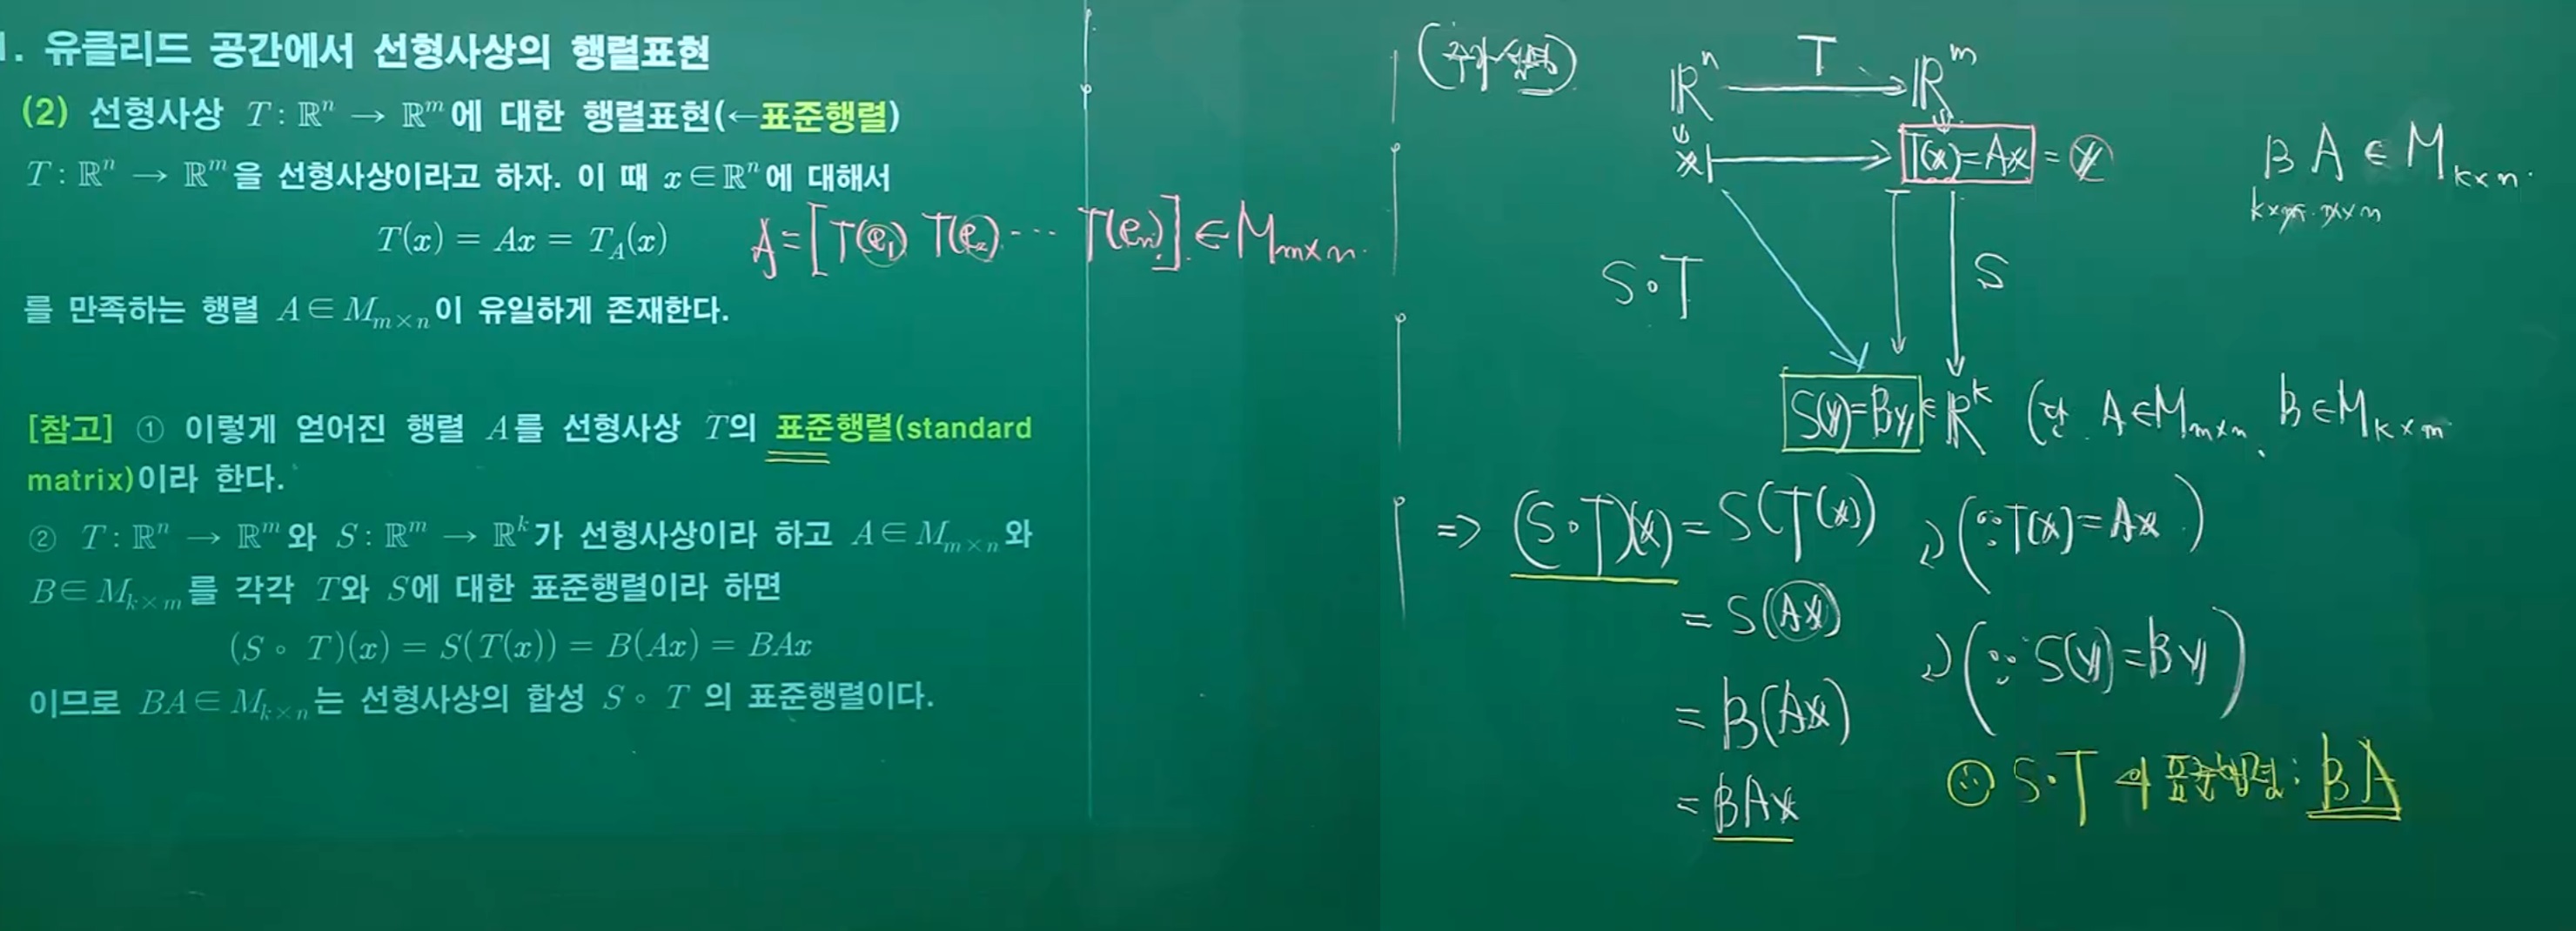 1. 유클리드 공간에서 선형사상의 행렬표현
(2) 선형사상 T : ℝⁿ → ℝᵐ에 대한 행렬표현(←표준행렬)
T : ℝⁿ → ℝᵐ을 선형사상이라고 하자. 이 때 x∈ℝⁿ에 대해서
T(x) = Ax = T_A(x)
A = [T(e₁) T(e₂) ⋯ T(eₙ)] ∈ M_{m×n}.
를 만족하는 행렬 A∈M_{m×n}이 유일하게 존재한다.
[참고] ① 이렇게 얻어진 행렬 A를 선형사상 T의 표준행렬(standard
matrix)이라 한다.
② T : ℝⁿ → ℝᵐ와 S : ℝᵐ → ℝᵏ가 선형사상이라 하고 A∈M_{m×n}와
B∈M_{k×m}를 각각 T와 S에 대한 표준행렬이라 하면
(S ∘ T)(x) = S(T(x)) = B(Ax) = BAx
이므로 BA∈M_{k×n}는 선형사상의 합성 S ∘ T 의 표준행렬이다.
T
ℝⁿ → ℝᵐ
x ↦ T(x)=Ax = y
B A ∈ M_{k×n}.
k×m m×n
S∘T
S
S(y)=By ∈ ℝᵏ (단 A∈M_{m×n}, B∈M_{k×m}
⇒ (S∘T)(x) = S(T(x))
(∵ T(x)=Ax)
= S(Ax)
(∵ S(y)=By)
= B(Ax)
= BAx
∴ S∘T 의 표준행렬: BA